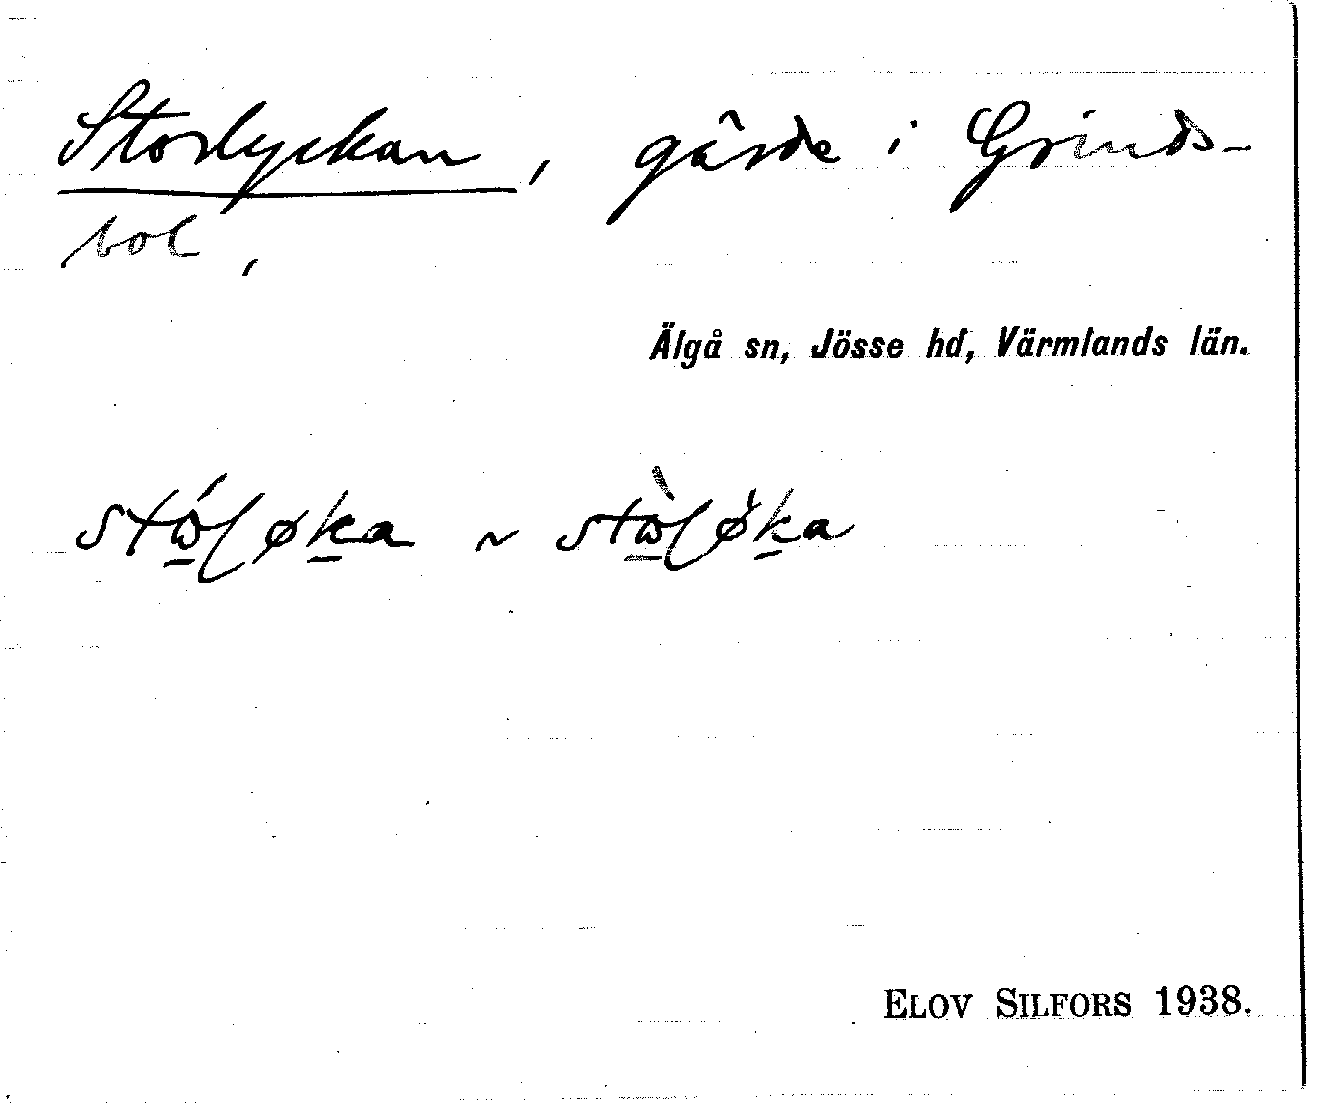 Storlyckan, gärde i Grinds-
bol,
Älgå sn, Jösse hd, Värmlands län.
ELOV SILFORS 1938.